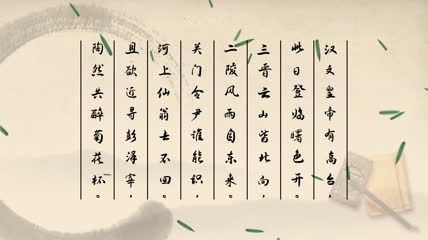 汉文皇帝有高台，
此日登临曙色开。
三晋云山皆北向，
二陵风雨自东来。
关门令尹谁能识，
河上仙翁去不回。
且欲近寻彭泽宰，
陶然共醉菊花杯。